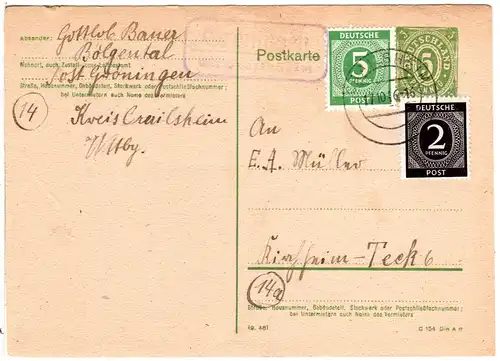 Absender: Gottlob Bauer
Bölgental
Wohnort, auch Zustell- oder Leitpostamt
Post Gröningen
Straße, Hausnummer, Gebäudeteil, Stockwerk oder Postschließfachnummer;
bei Untermietern auch Name des Vermieters
14
Kreis Crailsheim
Wttbg.
Postkarte
DEUTSCHE
5
PFENNIG
POST
DEUTSCHLAND
5
DEUTSCHE
2
PFENNIG
POST
An
E. A. Müller
Kirchheim-Teck
14a
Straße, Hausnummer, Gebäudeteil, Stockwerk oder Postschließfachnummer;
bei Untermietern auch Name des Vermieters
C 154 Din A 6